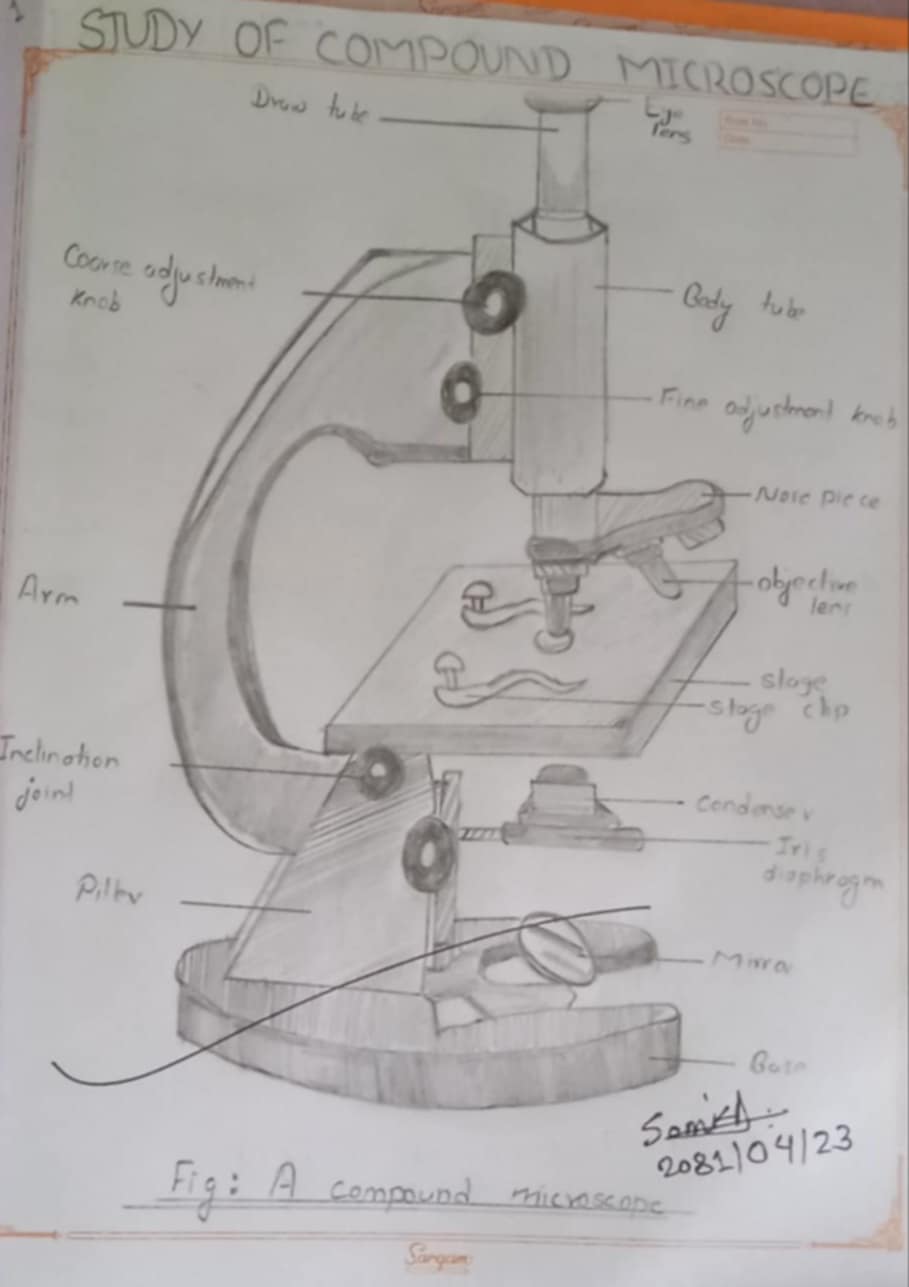 STUDY OF COMPOUND MICROSCOPE
Draw tube
Eye
lens
Coarse adjustment
Knob
Body tube
Fine adjustment knob
Nose piece
Arm
objective
lens
stage
stage clip
Inclination
joint
Condenser
Iris
diaphragm
Piller
Mirror
Base
2081/04/23
Fig: A compound microscope
Sargam